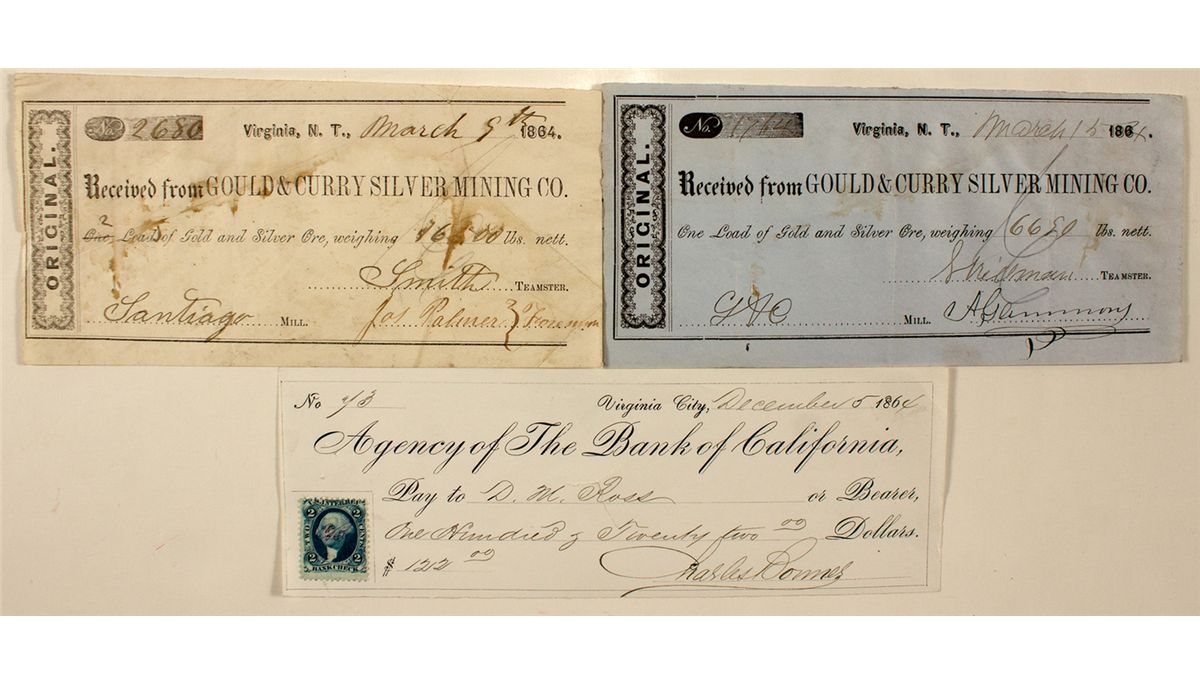 ORIGINAL.
No. 2680 Virginia, N. T., March 9th 1864.
Received from GOULD & CURRY SILVER MINING CO.
2
One Load of Gold and Silver Ore, weighing lbs. nett.
Smith TEAMSTER.
Santiago MILL. Jos Palmer
ORIGINAL.
No. 1762 Virginia, N. T., March 15 1864.
Received from GOULD & CURRY SILVER MINING CO.
One Load of Gold and Silver Ore, weighing 6680 lbs. nett.
TEAMSTER.
G & C MILL.
No 43 Virginia City, December 5 1864
Agency of The Bank of California,
Pay to D. M. Ross or Bearer,
One Hundred & Twenty two 00 Dollars.
$ 122 00 Charles Bonner
U.S. INTER. REV.
2 2
TWO CENTS
2 2
BANK CHECK